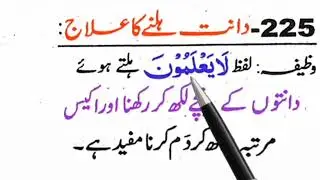 225-دانت ہلنے کا علاج:
وظیفہ: لفظ لَا یَعْلَمُوْنَ ہلتے ہوئے
دانتوں کے نیچے لکھ کر رکھنا اور اکیس
مرتبہ کر دَم کرنا مفید ہے۔